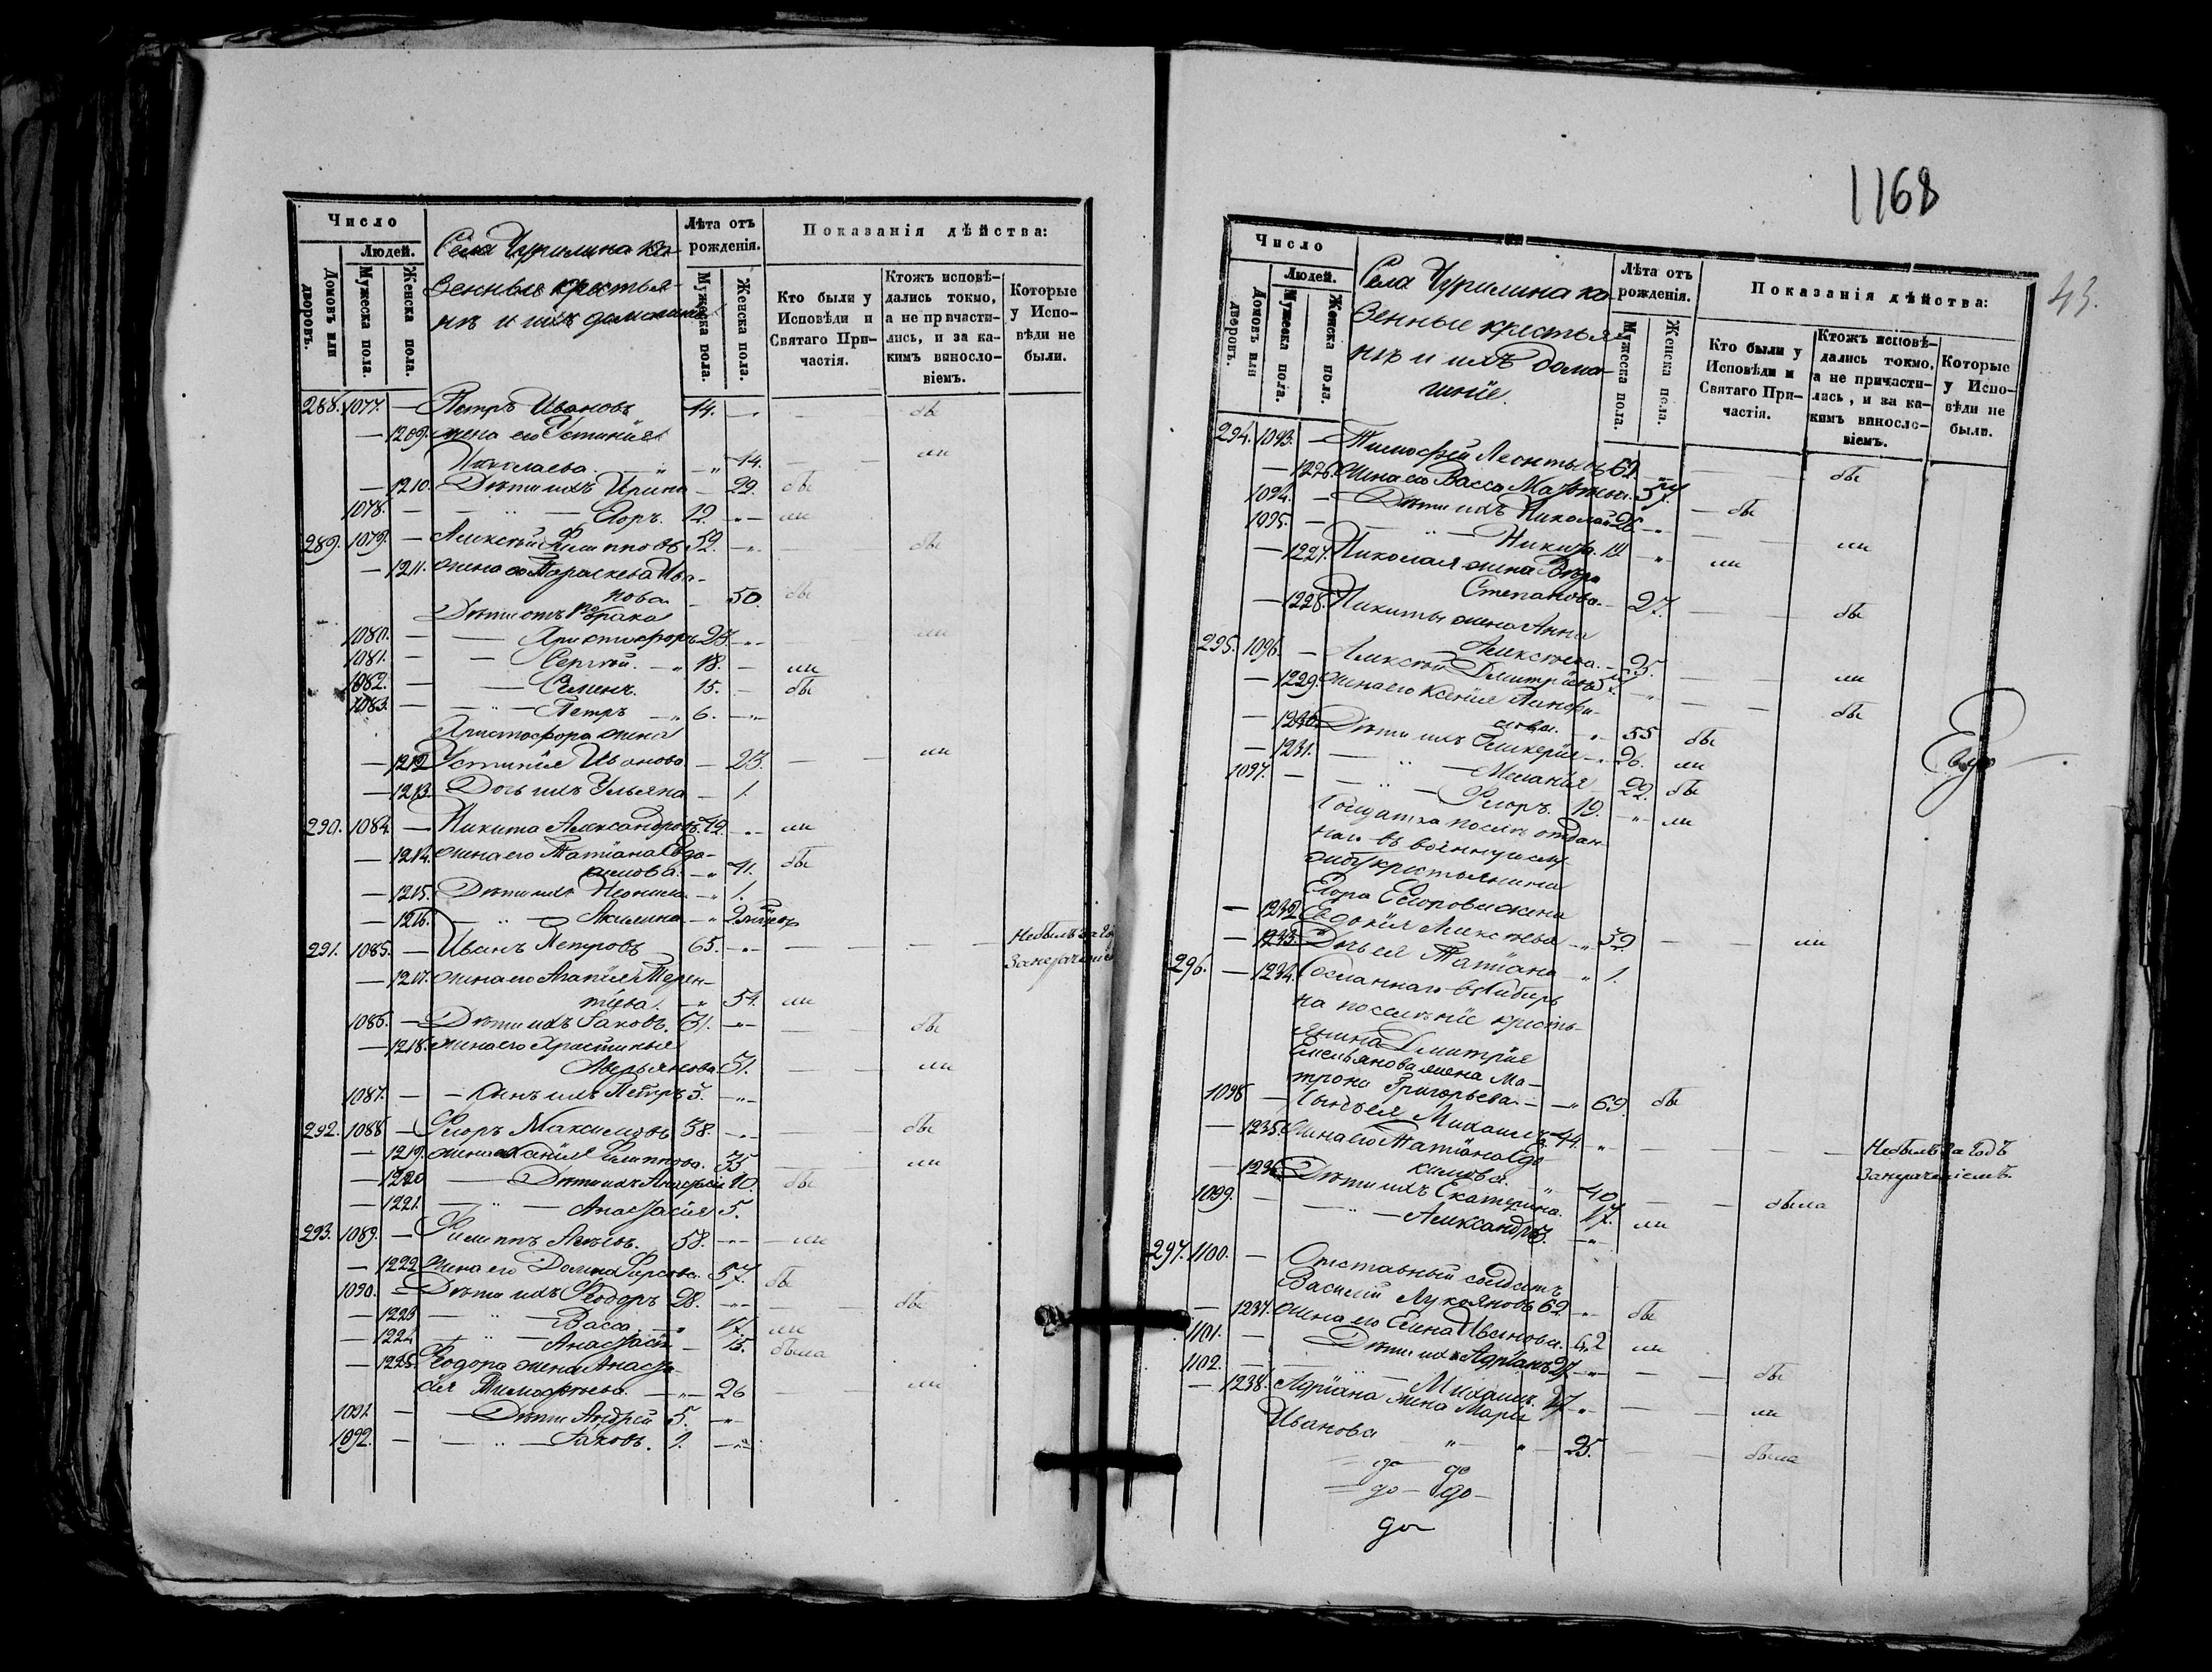 Число
Людей.
Домовъ или дворовъ.
Мужеска пола.
Женска пола.
Села Чурилина ка-
зенные крестья-
нѣ и ихъ домашніе
Лѣта отъ рожденія.
Мужеска пола.
Женска пола.
Показанія дѣйства:
Кто были у Исповѣди и Святаго Причастія.
Ктожъ исповѣдались токмо, а не причастились, и за какимъ винословіемъ.
Которые у Исповѣди не были.
288. 1077. — Петръ Ивановъ 44. — бы
— 1209. жена его Устинія
Николаева. — 44. — ли
— 1210. Дѣти ихъ Ирина — 22. бы
1078. — Егоръ. 12. — ли
289. 1079. — Алексѣй Филипповъ 52. — бы
— 1211. жена его Параскева Ива-
нова — 50. бы
Дѣти отъ 1го брака
1080. — Христофоръ 23. — ли
1081. — Сергѣй. — 18. — ли
1082. — Семенъ. 15. — бы
1083. — Петръ — 6. —
Христофора жена
— 1212. Устинія Иванова — 23. — ли
— 1213. Дочь ихъ Ульяна — 1.
290. 1084. — Никита Александровъ. 42. — ли
— 1214. жена его Татіана Евдо-
кимова. — 41. бы
— 1215. Дѣти ихъ Неонила — 1.
— 1216. — Акилина —
291. 1085. — Иванъ Петровъ 65. — Небылъ за
— 1217. жена его Агапія Терен-
тіева — 54. ли
1086. — Дѣти ихъ Іаковъ. 31. — бы
— 1218. жена его Христинья
Аверьянова. 31. — ли
1087. — Сынъ ихъ Петръ 5. —
292. 1088 — Ѳеоръ Максимовъ 38. — бы
— 1219. жена Ксенія Филиппова. 35 — ли
— 1220 — Дѣти ихъ 10. бы
— 1221. — Анастасія 5.
293. 1089. — Филиппъ 58. — ли
— 1222 жена его Домна Фирсова. 57. бы
1090. — Дѣти ихъ Ѳеодоръ 28. — бы
— 1223 — Васса — 17. ли
— 1224 — Анастасія — 15. была
— 1225. Ѳеодора жена Анаста-
сія Тимоѳѣева. — 26 — ли
1091. — Дѣти Андрей 5. —
1092. — Іаковъ. 1. —
1168
43.
Число
Людей.
Домовъ или дворовъ.
Мужеска пола.
Женска пола.
Села Чурилина ка-
зенные крестья-
нѣ и ихъ дома-
шніе.
Лѣта отъ рожденія.
Мужеска пола.
Женска пола.
Показанія дѣйства:
Кто были у Исповѣди и Святаго Причастія.
Ктожъ исповѣдались токмо, а не причастились, и за какимъ винословіемъ.
Которые у Исповѣди не были.
294. 1093. — Тимоѳей Леонтьевъ 62. — бы
— 1226. Жена его Васса 57. — бы
1094. — Дѣти ихъ Николай 26 — ли
1095. — Никита. — ли
— 1227. Николая жена Вѣра
Степанова. — 27. — бы
— 1228. Никиты жена Анна
Алексѣева. — 25. — ли
295. 1096. — Алексѣй Дмитріевъ — бы
— 1229. жена его Ксенія
— 55 бы
— 1230. Дѣти ихъ Гликерія — 26. ли
— 1231. — Меланія 22. бы
1097. — Ѳеоръ. 19. — ли
Солдатка послѣ отдан-
наго въ военную слу-
жбу крестьянина
Егора Егорова жена
— 1232 Евдокія Алексѣева — 32 — ли
— 1233. Дочь ея Татіана — 1.
296. — 1234. Сосланнаго въ Сибирь
на поселеніе кресть-
янина Дмитрія
Емельянова жена Ма-
трона Григорьева. — 69. бы
1098 — Сынъ ея Михаилъ 44. — Небылъ за годъ
— 1235. жена его Татіана Евдо-
кимова. — 40 — была
— 1236 Дѣти ихъ Екатерина. 17. ли
1099. — Александръ 5. —
297. 1100. — Отставный солдатъ
Василій Лукояновъ 62. — бы
— 1237. жена его Елена Иванова. 62 ли
1101. — Дѣти ихъ Адріанъ 27 — бы
1102. — Михаилъ. 27 — ли
— 1238. Адріана жена Марія
Иванова — 25. была